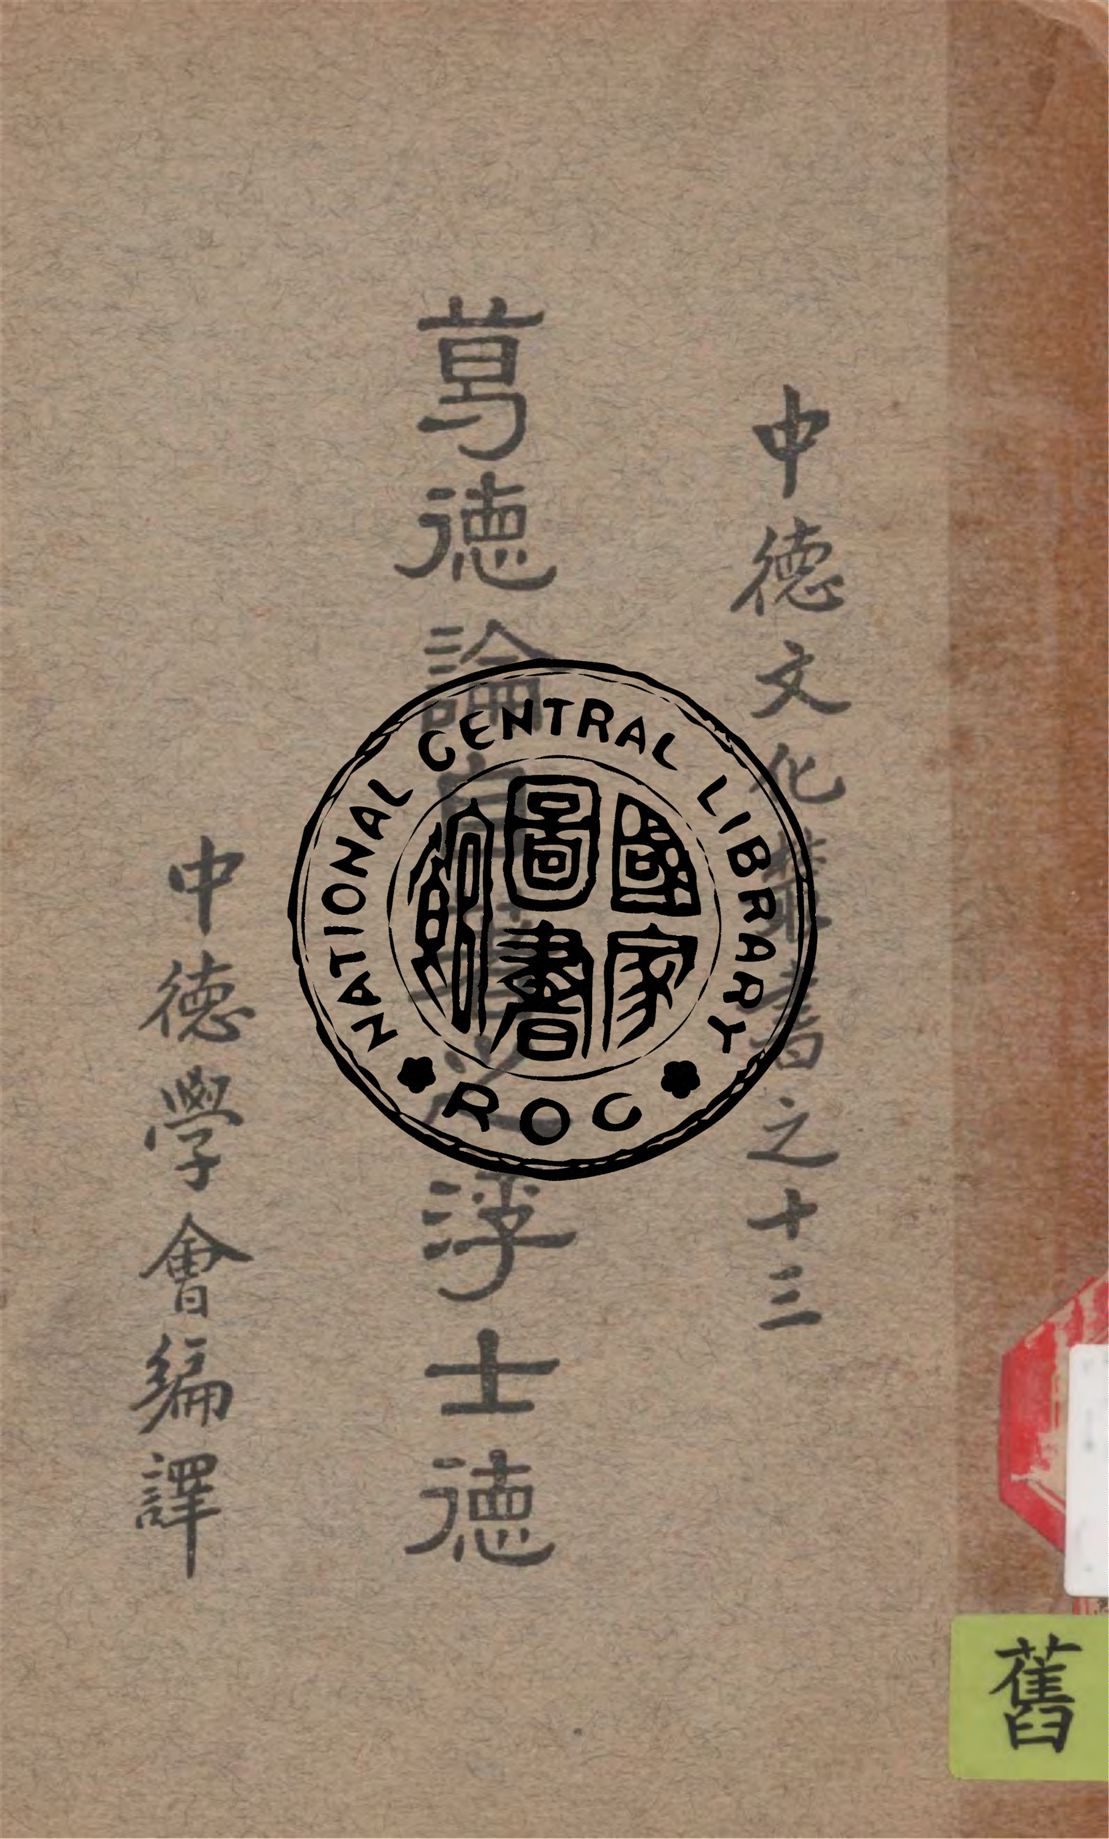 中德文化叢書之十三
葛德論自著之浮士德
中德學會編譯
NATIONAL CENTRAL LIBRARY
ROC
國家圖書館
舊